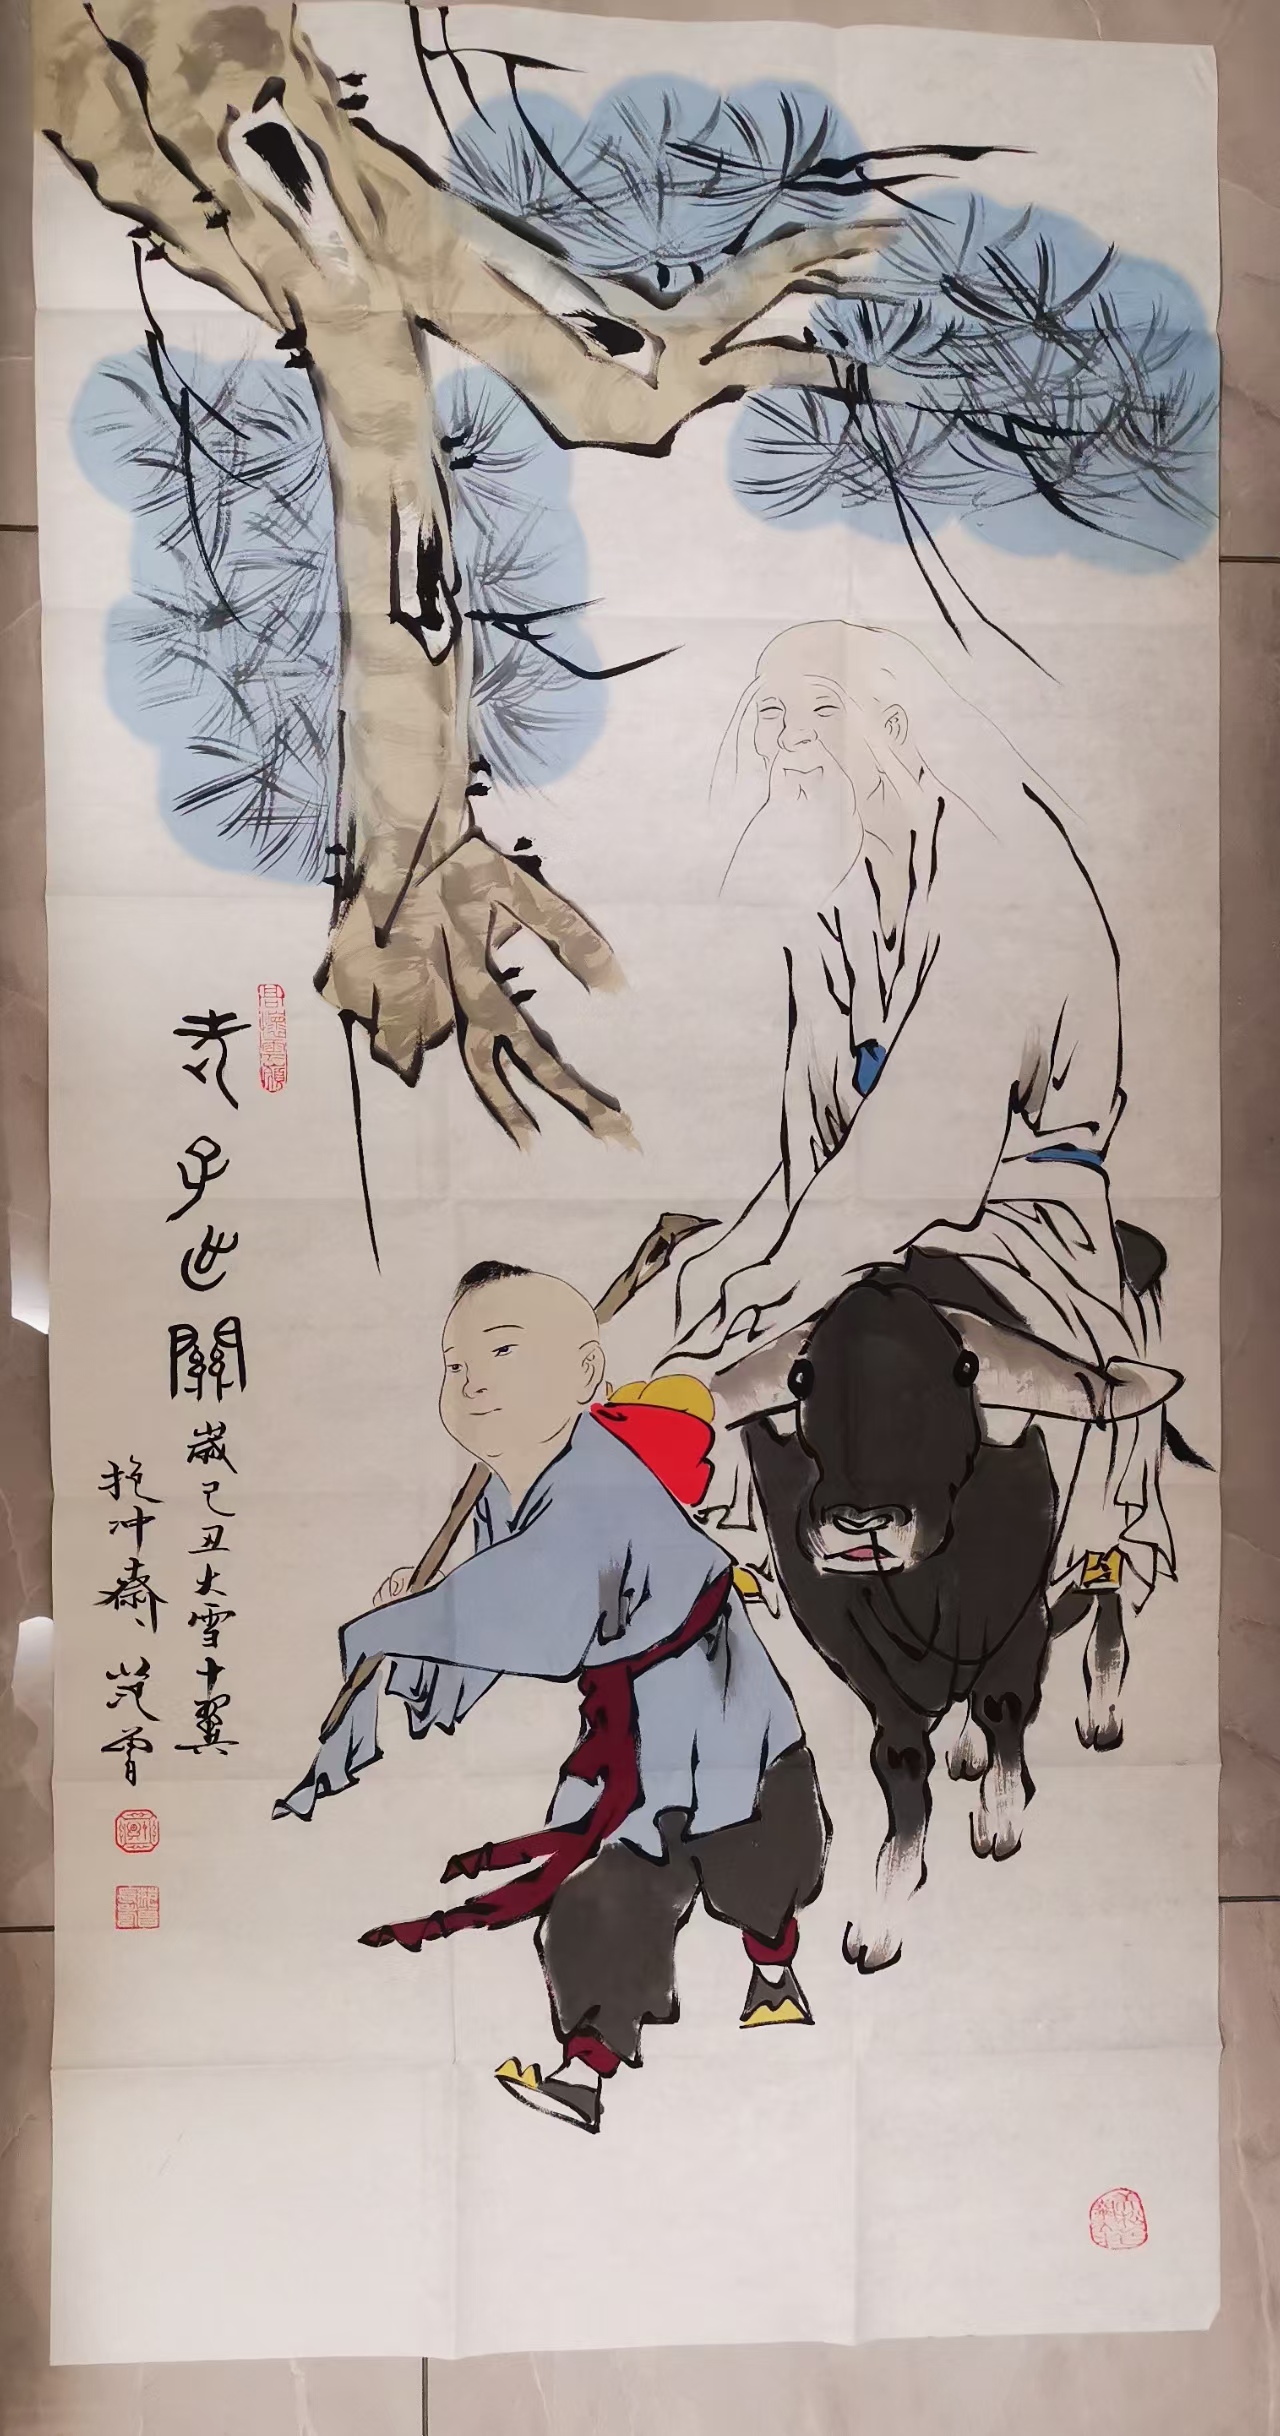 老子出關
歲己丑大雪十翼
抱冲齋
范曾